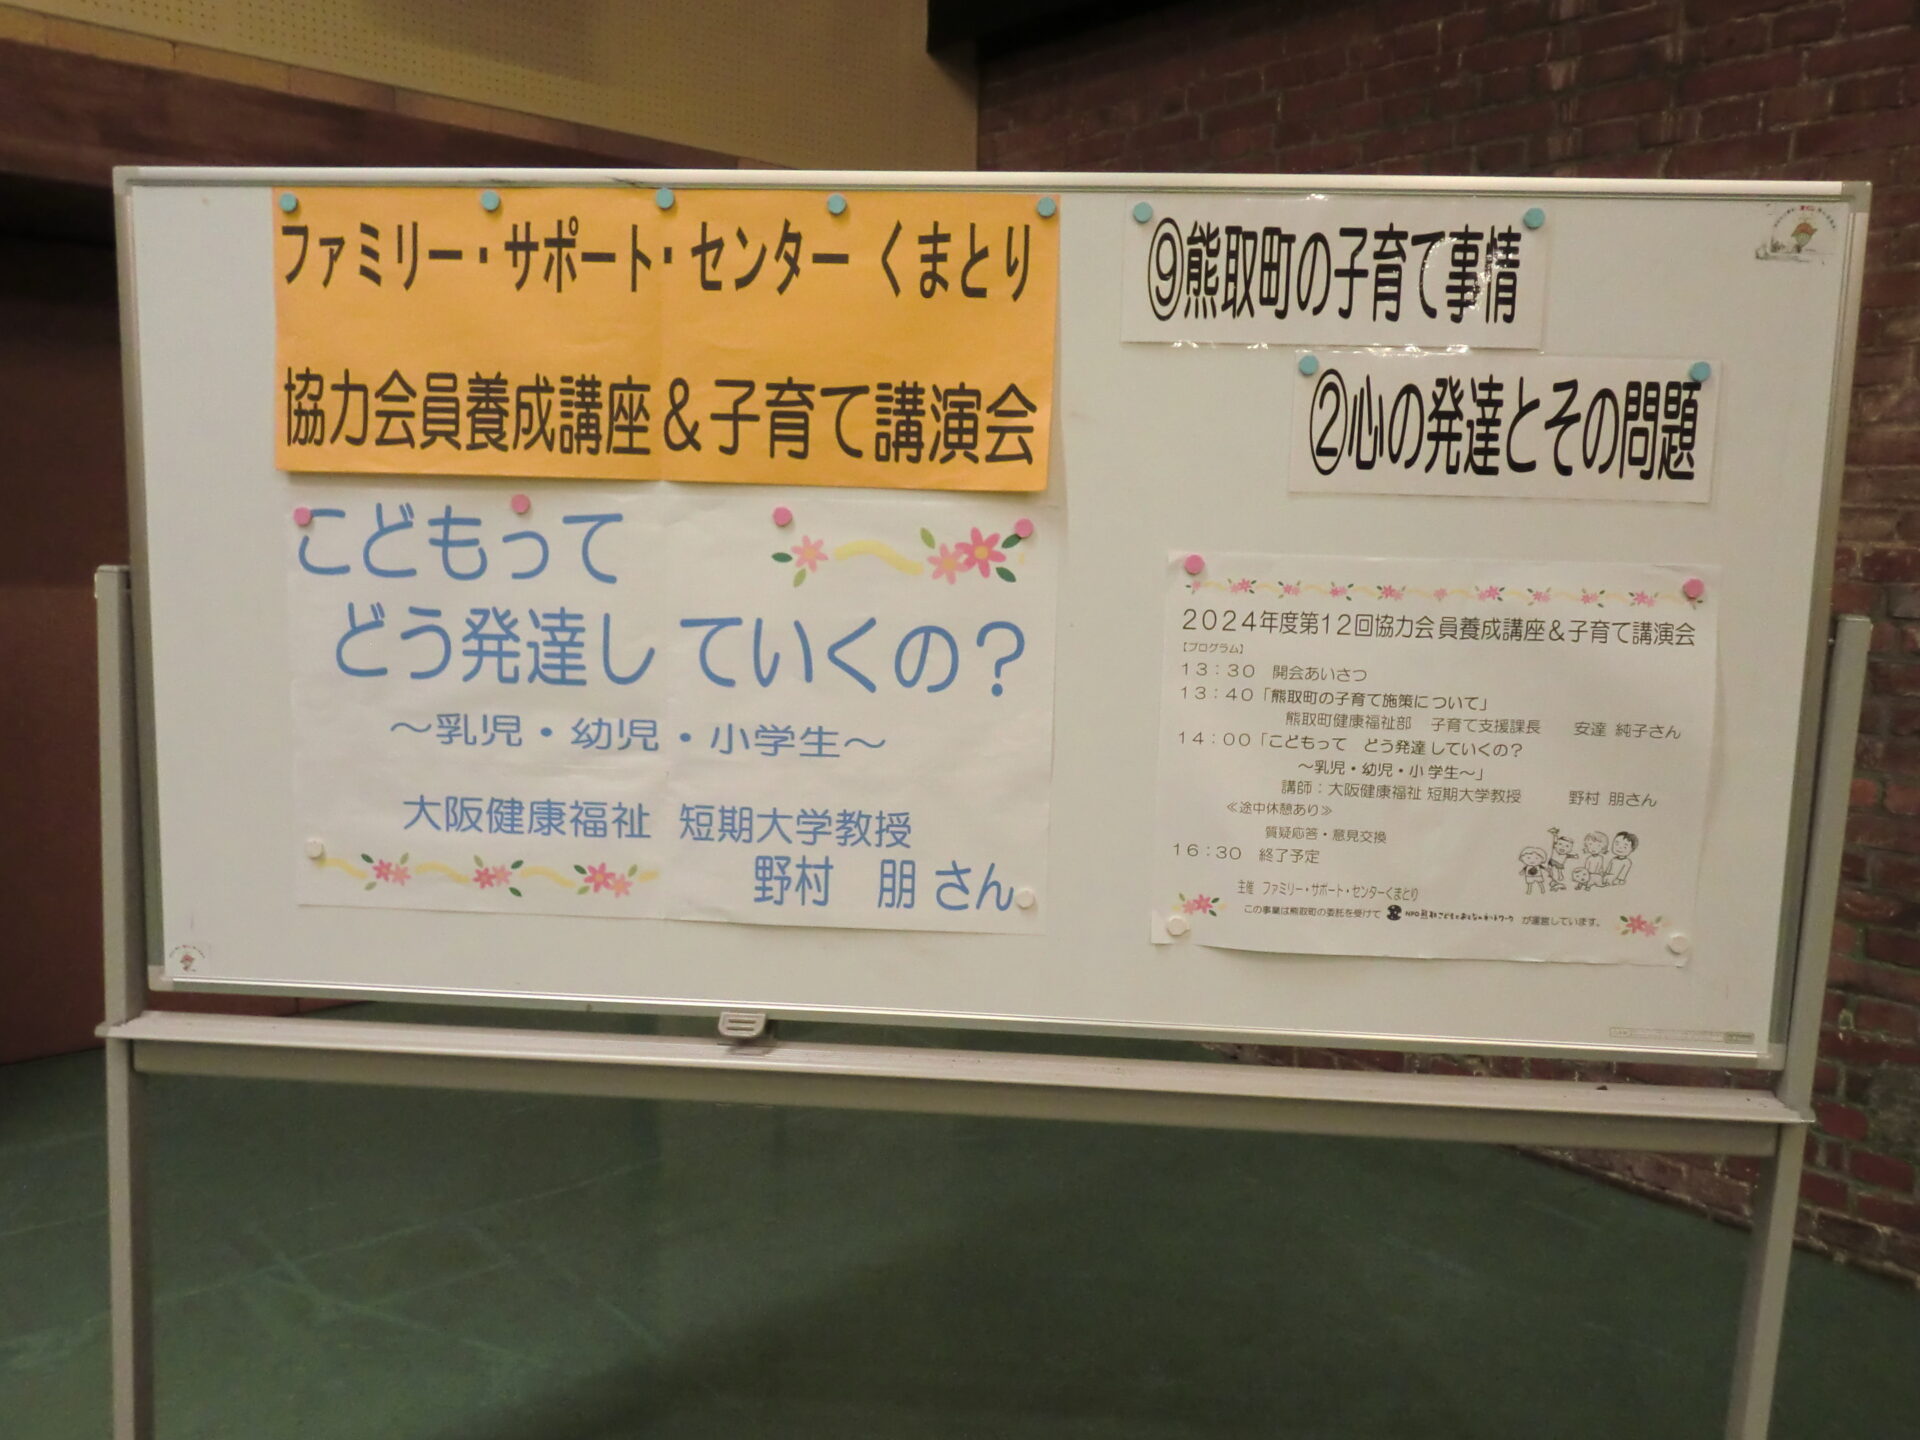 ファミリー・サポート・センター くまとり
協力会員養成講座＆子育て講演会
こどもって
どう発達していくの？
～乳児・幼児・小学生～
大阪健康福祉 短期大学教授
野村 朋 さん
⑨熊取町の子育て事情
②心の発達とその問題
2024年度第12回協力会員養成講座＆子育て講演会
【プログラム】
13：30 開会あいさつ
13：40「熊取町の子育て施策について」
熊取町健康福祉部 子育て支援課長 安達 純子さん
14：00「こどもって どう発達していくの？
～乳児・幼児・小学生～」
講師：大阪健康福祉 短期大学教授 野村 朋さん
≪途中休憩あり≫
質疑応答・意見交換
16：30 終了予定
主催 ファミリー・サポート・センターくまとり
この事業は熊取町の委託を受けて NPO熊取こどもとおとなのネットワーク が運営しています。